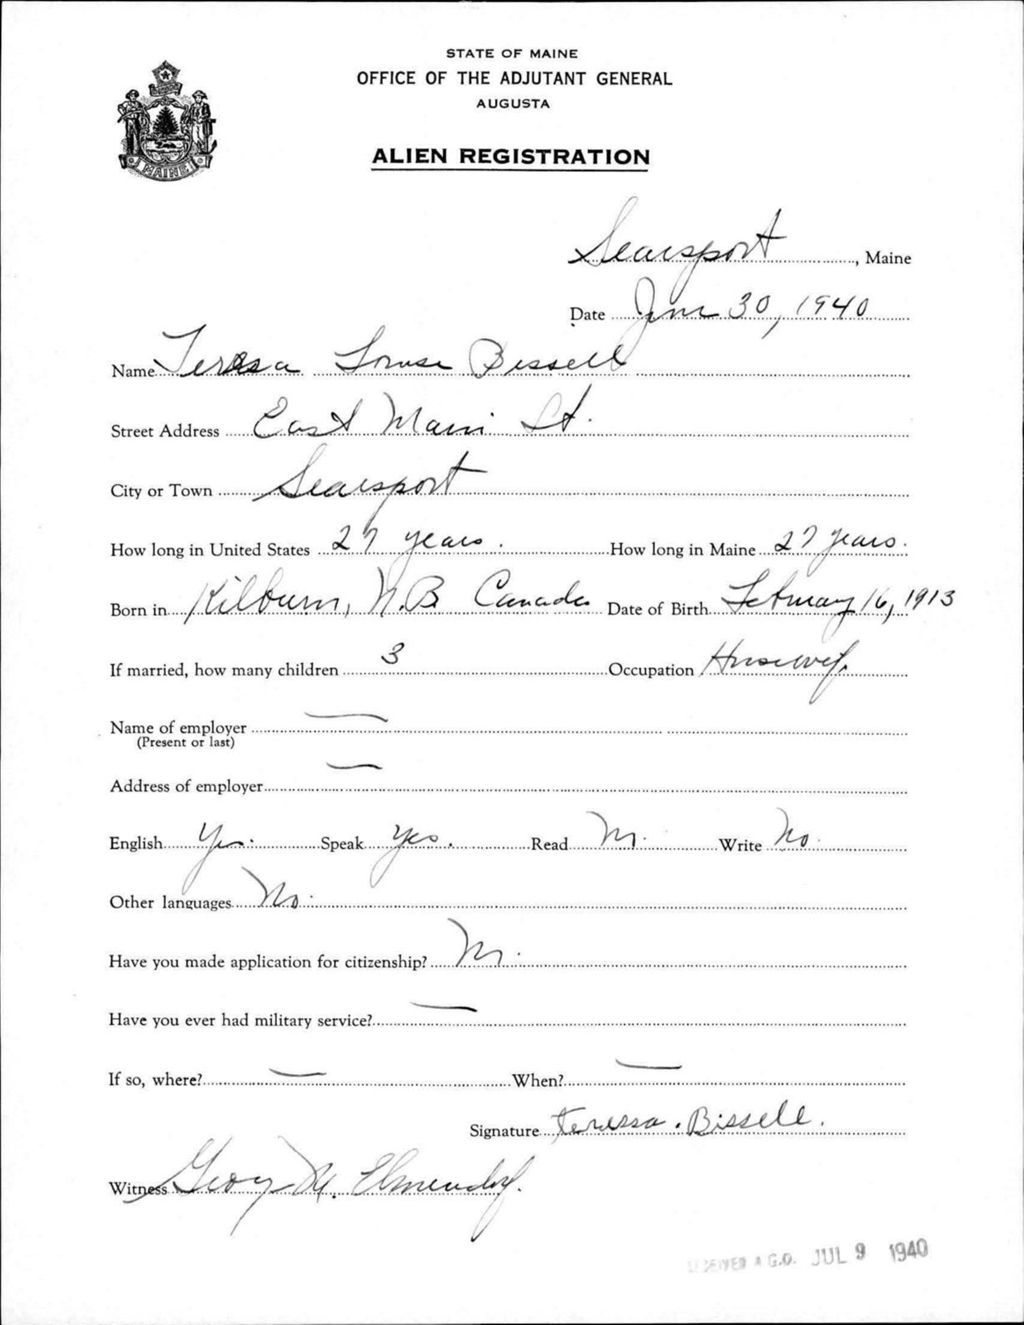 STATE OF MAINE
OFFICE OF THE ADJUTANT GENERAL
AUGUSTA
MAINE
ALIEN REGISTRATION
Searsport, Maine
Date June 30, 1940
Name Teresa Louise Bissell
Street Address East Main St.
City or Town Searsport
How long in United States 27 years. How long in Maine 27 years.
Born in Kilburn, N.B Canada Date of Birth February 16, 1913
If married, how many children 3 Occupation Housewife
Name of employer —
(Present or last)
Address of employer —
English Yes. Speak Yes. Read No. Write No.
Other languages No.
Have you made application for citizenship? No.
Have you ever had military service? —
If so, where? — When? —
Signature Teressa. Bissell.
Witness M. Elmendorf.
RECEIVED A.G.O. JUL 9 1940